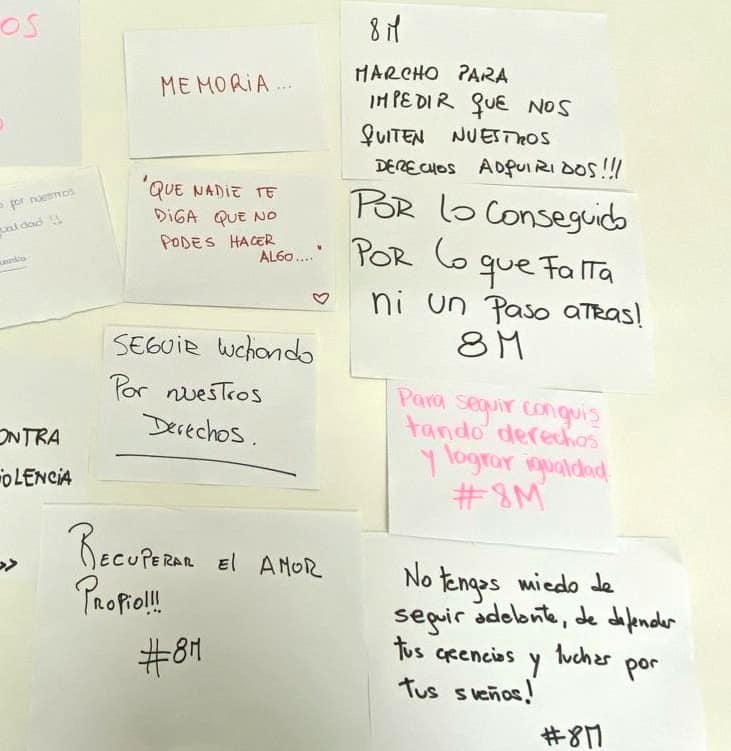 OS
MEMORIA...
8M
MARCHO PARA
IMPEDIR QUE NOS
QUITEN NUESTROS
DERECHOS ADQUIRIDOS!!!
por nuestros
ualdad !!
"QUE NADIE TE
DIGA QUE NO
PODES HACER
ALGO...."
POR lo conseguido
POR lo que FALTA
ni UN PASO ATRAS!
8M
SEGUIR luchando
Por nuestros
Derechos.
Para seguir conquis
tando derechos
y lograr igualdad.
#8M
ONTRA
IOLENCIA
»
RECUPERAR El AMOR
PROPIO!!!
#8M
No tengas miedo de
seguir adelante, de defender
tus creencias y luchar por
tus sueños!
#8M